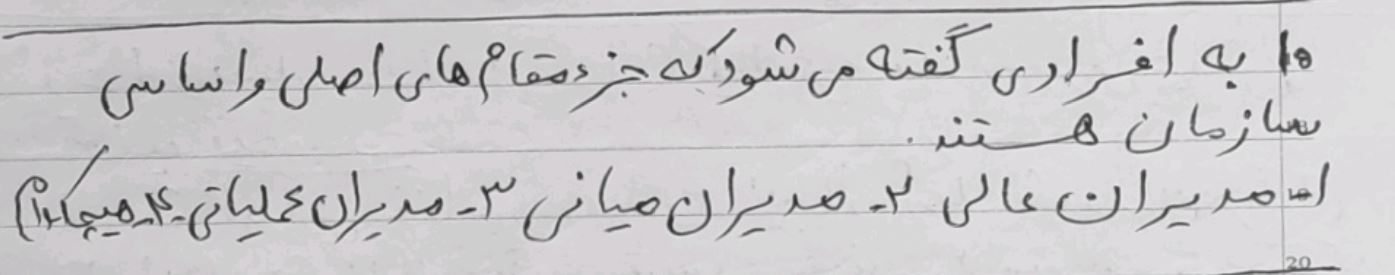 ۱۰ به افرادی گفته می شود که جزء مقام های اصلی و اساسی
سازمان هستند.
۱- مدیران عالی ۲- مدیران میانی ۳- مدیران عملیاتی ۴- هیچکدام
20